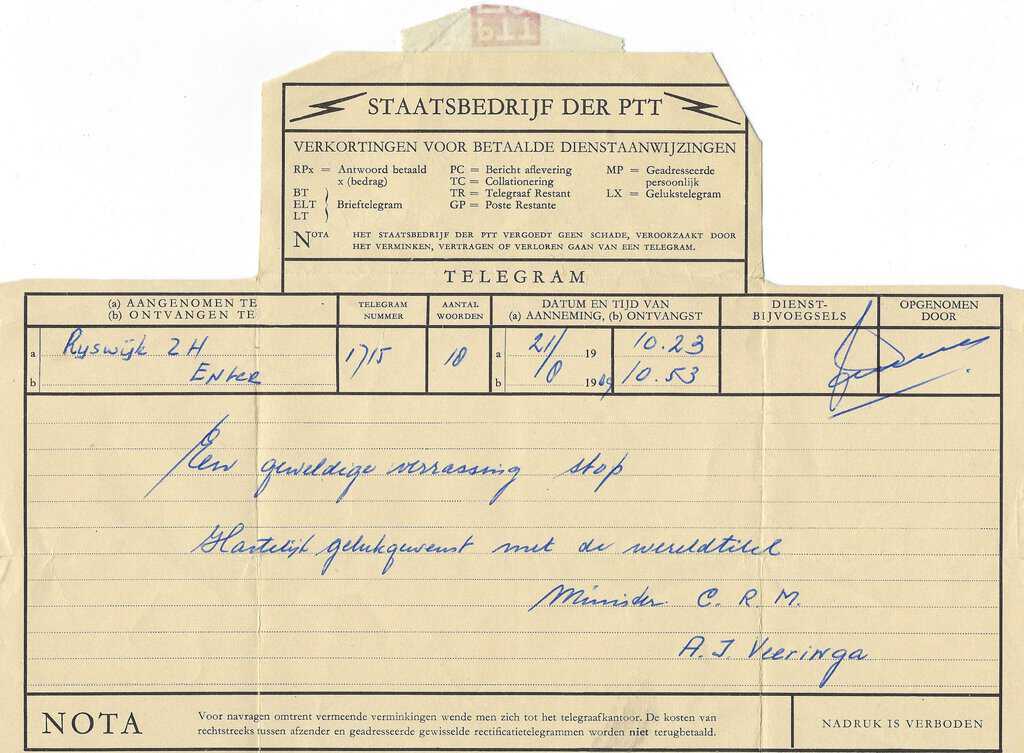 b11
STAATSBEDRIJF DER PTT
VERKORTINGEN VOOR BETAALDE DIENSTAANWIJZINGEN
RPx = Antwoord betaald x (bedrag)
BT
ELT } Brieftelegram
LT
PC = Bericht aflevering
TC = Collationering
TR = Telegraaf Restant
GP = Poste Restante
MP = Geadresseerde persoonlijk
LX = Gelukstelegram
NOTA HET STAATSBEDRIJF DER PTT VERGOEDT GEEN SCHADE, VEROORZAAKT DOOR
HET VERMINKEN, VERTRAGEN OF VERLOREN GAAN VAN EEN TELEGRAM.
TELEGRAM
(a) AANGENOMEN TE
(b) ONTVANGEN TE
TELEGRAM NUMMER
AANTAL WOORDEN
DATUM EN TIJD VAN
(a) AANNEMING, (b) ONTVANGST
DIENST-BIJVOEGSELS
OPGENOMEN DOOR
a Ryswijk ZH
b Enter
1715
18
a 21/ 19 10.23
b /8 1969 10.53
Een geweldige verrassing stop
Hartelijk gelukgewenst met de wereldtitel
Minister C. R. M.
A. J. Veeringa
NOTA
Voor navragen omtrent vermeende verminkingen wende men zich tot het telegraafkantoor. De kosten van
rechtstreeks tussen afzender en geadresseerde gewisselde rectificatietelegrammen worden niet terugbetaald.
NADRUK IS VERBODEN